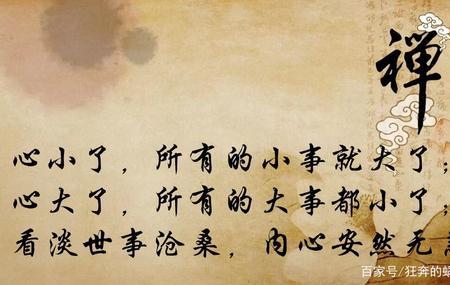 禅
心小了，所有的小事就大了；
心大了，所有的大事都小了；
看淡世事沧桑，内心安然无
百家号/狂奔的蜗